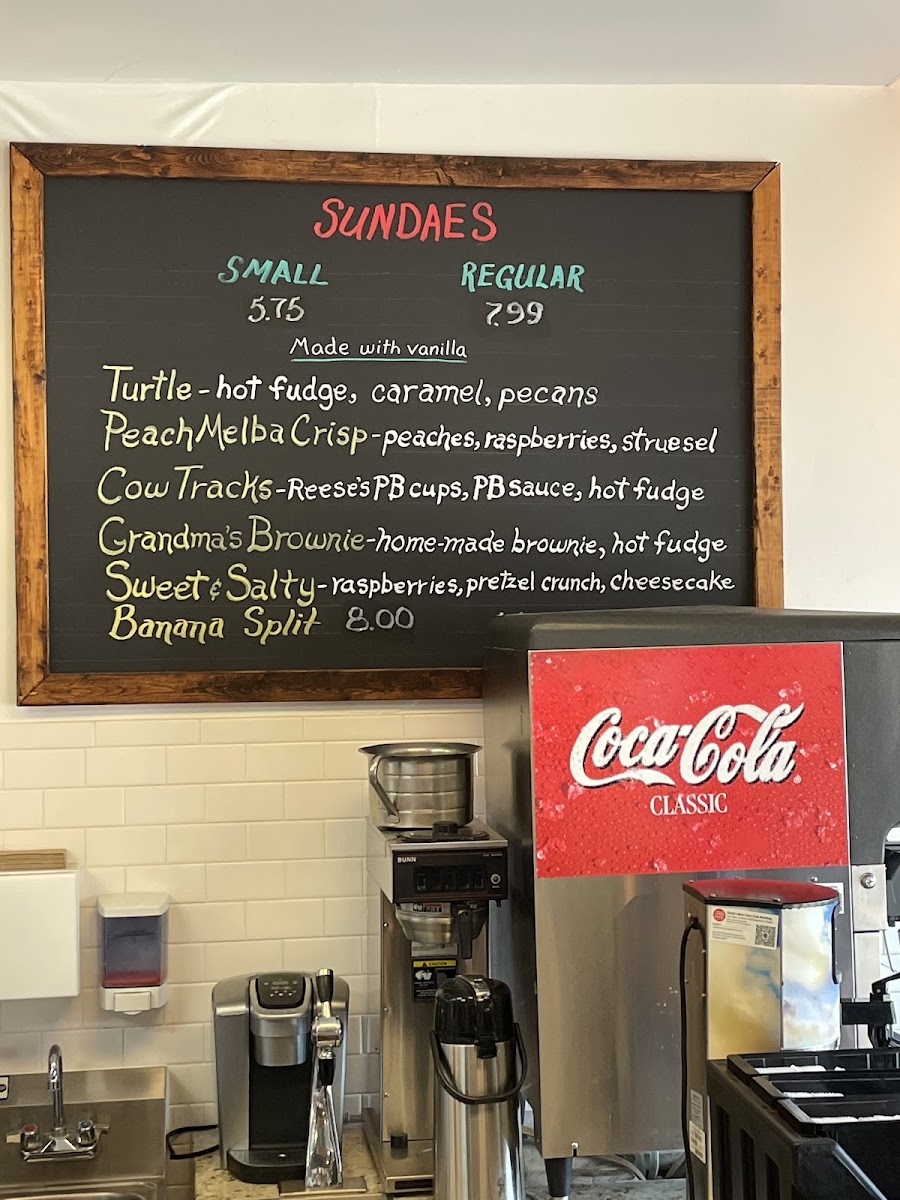 SUNDAES
SMALL REGULAR
5.75 7.99
Made with vanilla
Turtle - hot fudge, caramel, pecans
Peach Melba Crisp - peaches, raspberries, struesel
Cow Tracks - Reese's PB cups, PB sauce, hot fudge
Grandma's Brownie - home-made brownie, hot fudge
Sweet & Salty - raspberries, pretzel crunch, cheesecake
Banana Split 8.00
Coca-Cola
CLASSIC
BUNN
CAUTION